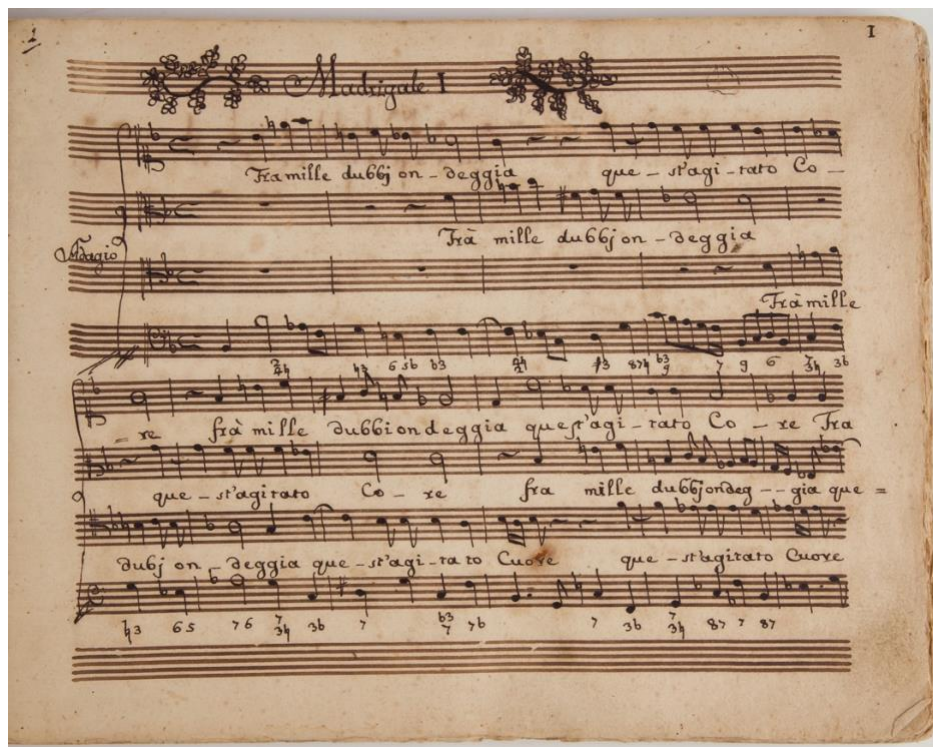 1 1
Madrigale I
Frà mille dubbj on - deggia que - st'agi - tato Co -
Frà mille dubbj on - deggia
Adagio
Frà mille
6 5b b3
- re frà mille dubbiondeggia quest'agi - tato Co - re Fra
que - st'agitato Co - re fra mille dubbjondeg - - gia que =
dubj on - deggia que - st'agi - ta to Cuore que - st'agitato Cuore
6 5 7 6 3b 7 7b 7 3b 87 7 87